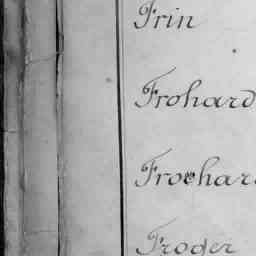 Frin
Frohard
Frochard
Froger